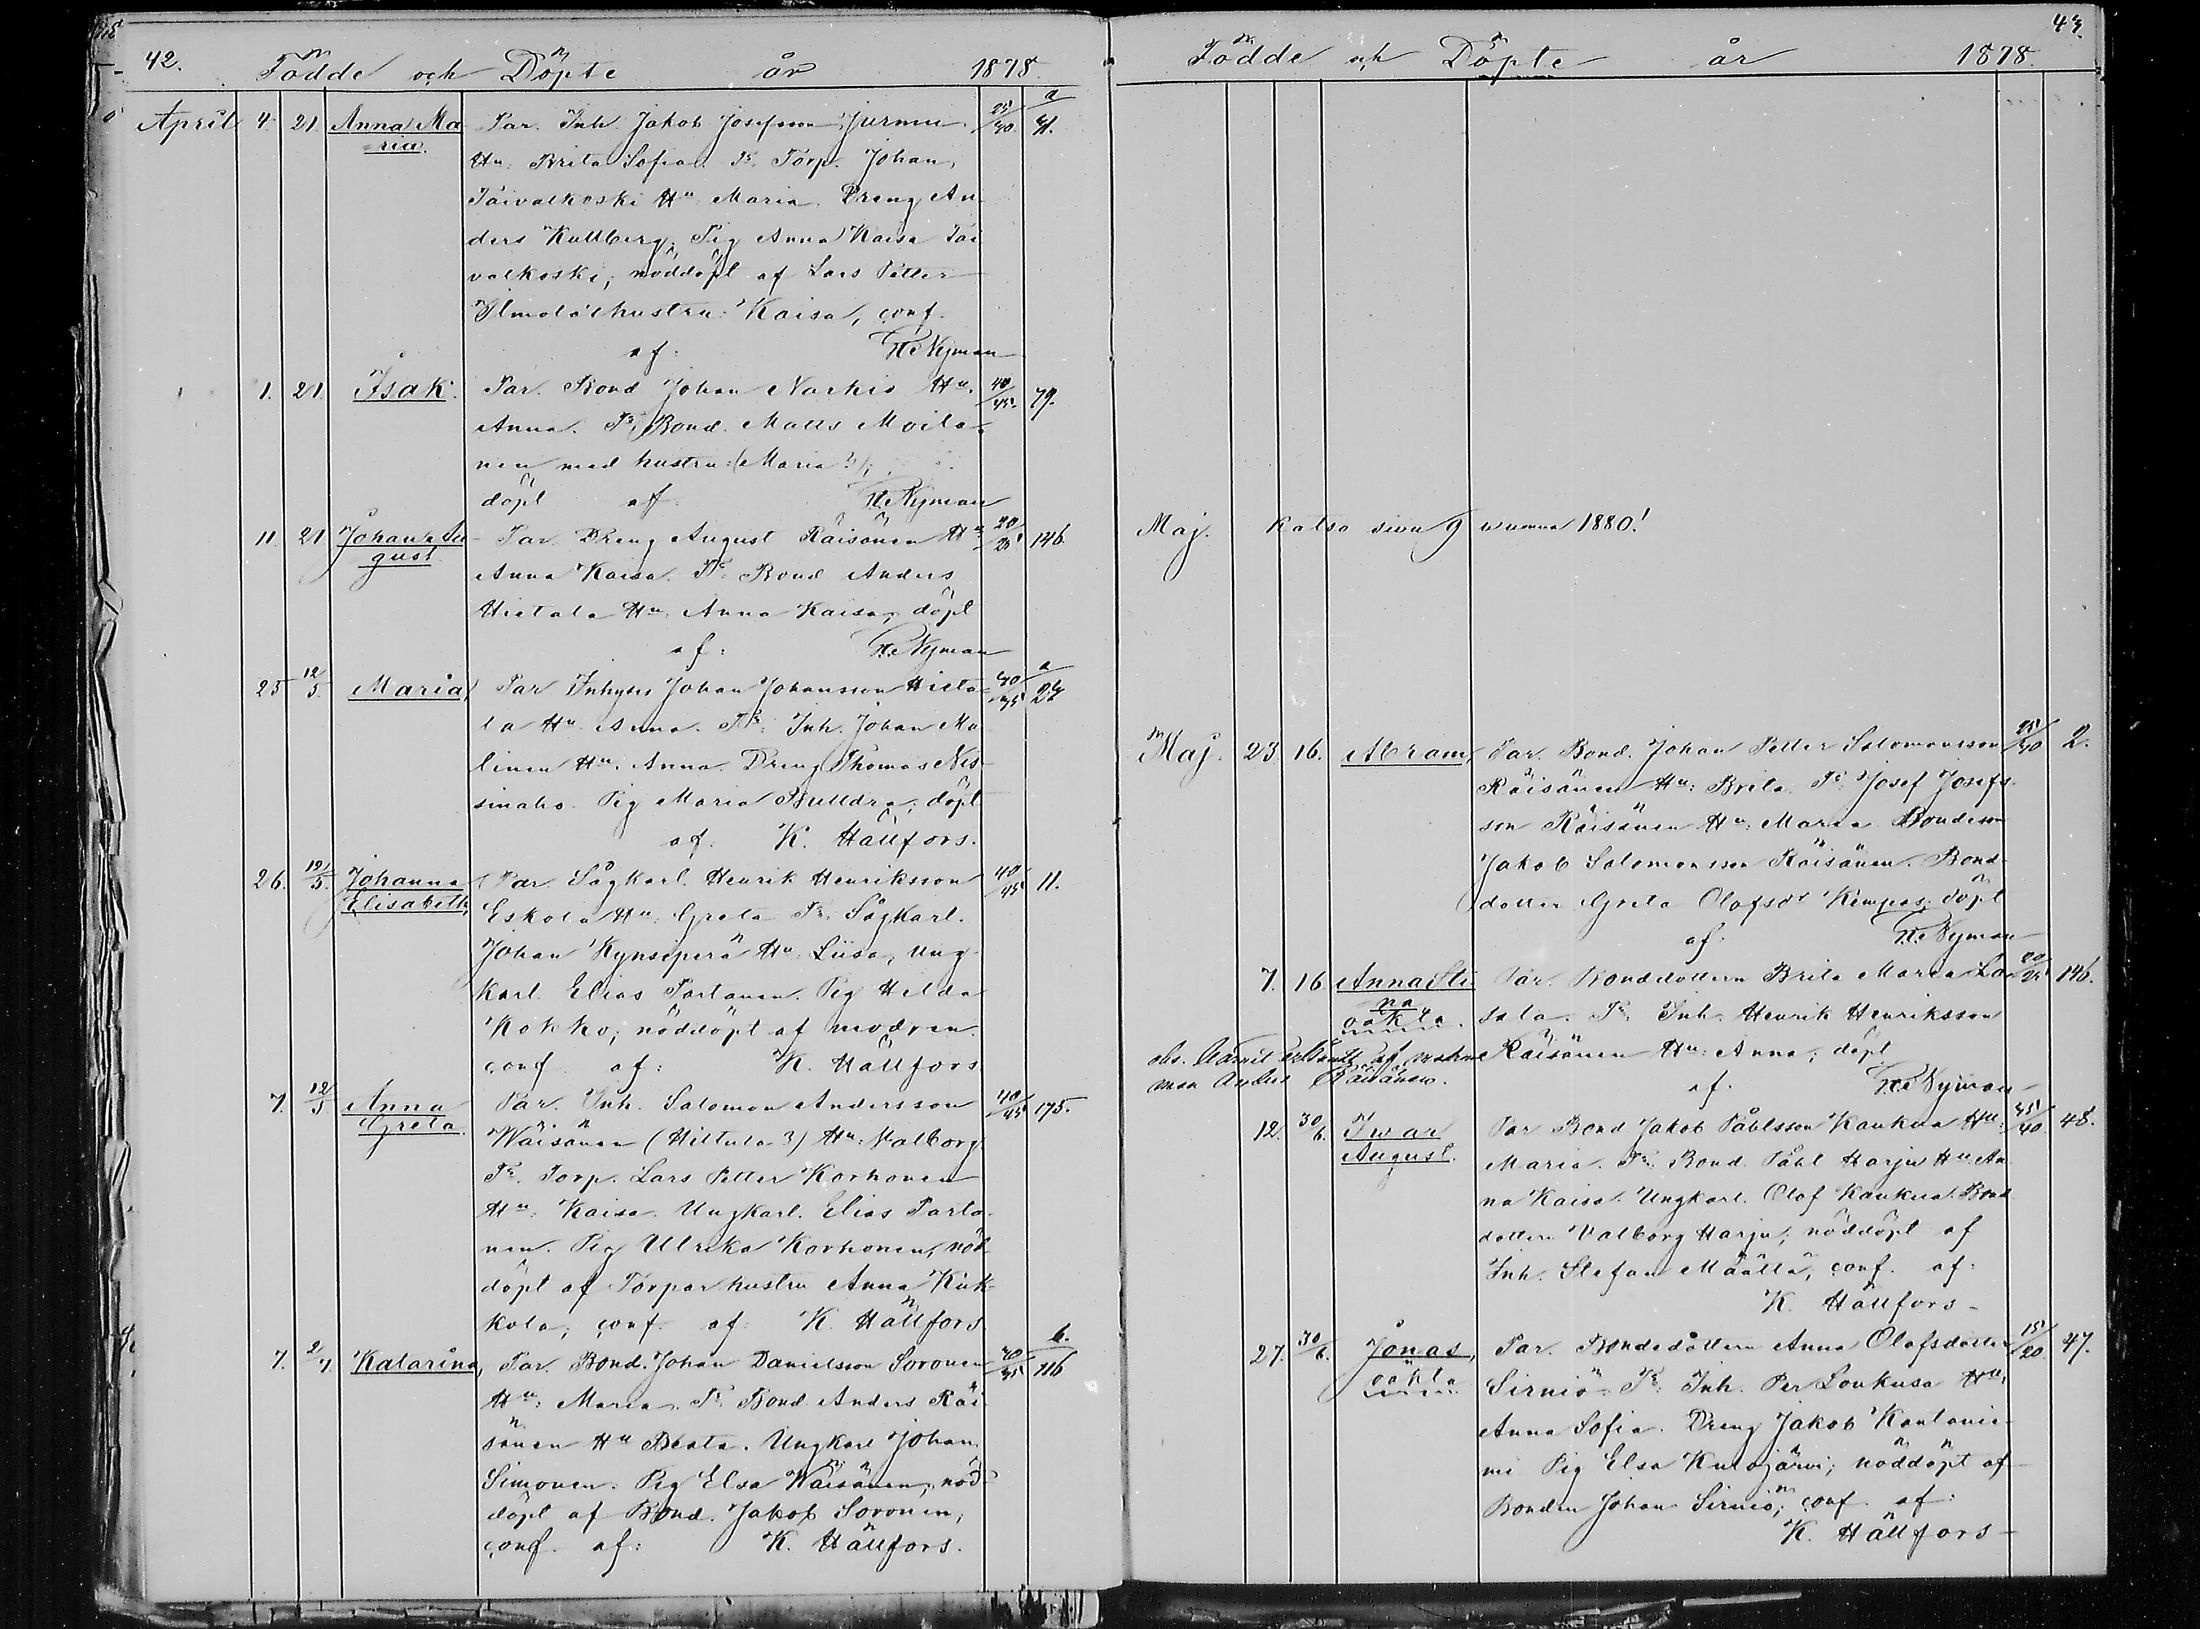 42.
Födde och Döpte år 1878.
April 4. 21 Anna Ma Par. Inh. Jakob Josefsson Jurmu 25/30 a 41.
ria. Hu. Brita Sofia. Ts. Torp. Johan
Taivalkoski Hu Maria. Dreng An
ders Kullberg. Pig Anna Kaisa Tai
valkoski; nöddöpt af Lars Petter
hustru Kaisa, conf.
af: H. Nyman
1. 21. Isak. Par. Bond Johan Narkis Hu. 40/45. 79.
Anna. Ts. Bond. Matts Moila
nen med hustru (Maria ?);
döpt af H. Nyman
11. 21 Johan Au Par. Dreng August Räisänen Hu 20/25 146.
gust Anna Kaisa. Ts. Bond Anders
Hietala Hu. Anna Kaisa; döpt
af: H. Nyman
25 12/5. Maria, Par Inhyses Johan Johansson Hieta 30/35 a 24
la Hu. Anna. Ts. Inh. Johan Ma
linen Hu. Anna. Dreng Thomas Nis
sinaho. Pig Maria döpt
af: K. Hällfors.
26. 12/5. Johanna Par. Sågkarl. Henrik Henriksson 40/45 11.
Elisabeth, Eskola Hu. Greta Ts. Sågkarl.
Johan Kynsiperä Hu. Liisa, Ung
karl. Elias Partanen. Pig Hilda
Kokko; nöddöpt af modren
conf af: K. Hällfors
7. 12/5 Anna Par. Inh. Salomon Andersson 40/45 175.
Greta. Wäisänen (Hiltula ?) Hu. Valborg
Ts. Torp. Lars Petter Korhonen
Hu. Kaisa. Ungkarl. Elias Parta
nen. Pig Ulrika Korhonen, nöd
döpt af Torparhustru Anna Kuk
kola; conf. af: K. Hällfors.
7. 2/7. Katarina, Par. Bond. Johan Danielsson Soronen 30/35 b. 116
Hu: Maria. Ts. Bond. Anders Räi
sänen Hu Beata. Ungkarl Johan
Simonen. Pig Elsa Wäisänen; nöd
döpt af Bond. Jakob Soronen,
conf. af: K. Hällfors.
43.
Födde och Döpte år 1878.
Maj. Katso sivu 9 wuonna 1880!
Maj. 23. 16. Abram, Par. Bond. Johan Petter Salomonsson 25/30 2.
Räisänen Hu: Brita. Ts. Josef Josefs
son Räisänen Hu. Maria. Bondeson
Jakob Salomonsson Räisänen. Bond
dotter Greta Olofsdr döpt
af. H. Nyman
7. 16 Anna Sti Par. Bonddottern Brita Maria La 20/25 146.
na sala. Ts. Inh. Henrik Henriksson
oäkta.
Räisänen Hu: Anna; döpt
af. H. Nyman
obs. af
man Räisänen.
12. 30/6. Iwar Par Bond Jakob Påhlsson Kaukua Hu. 35/40 48.
August. Maria. Ts. Bond. Påhl Harju Hu. An
na Kaisa. Ungkarl. Olof Kaukua. Bond
dottern Valborg Harju; nöddöpt af
Inh. Stefan Määttä; conf. af:
K. Hällfors
27. 30/6. Jonas, Par. Bondedottern Anna Olofsdotter 15/20 47.
oäkta Sirniö. Ts: Inh. Per Loukusa Hu.
Anna Sofia. Dreng Jakob Kantonie
mi Pig Elsa Kurojärvi; nöddöpt af
Bonden Johan Sirniö; conf. af:
K. Hällfors